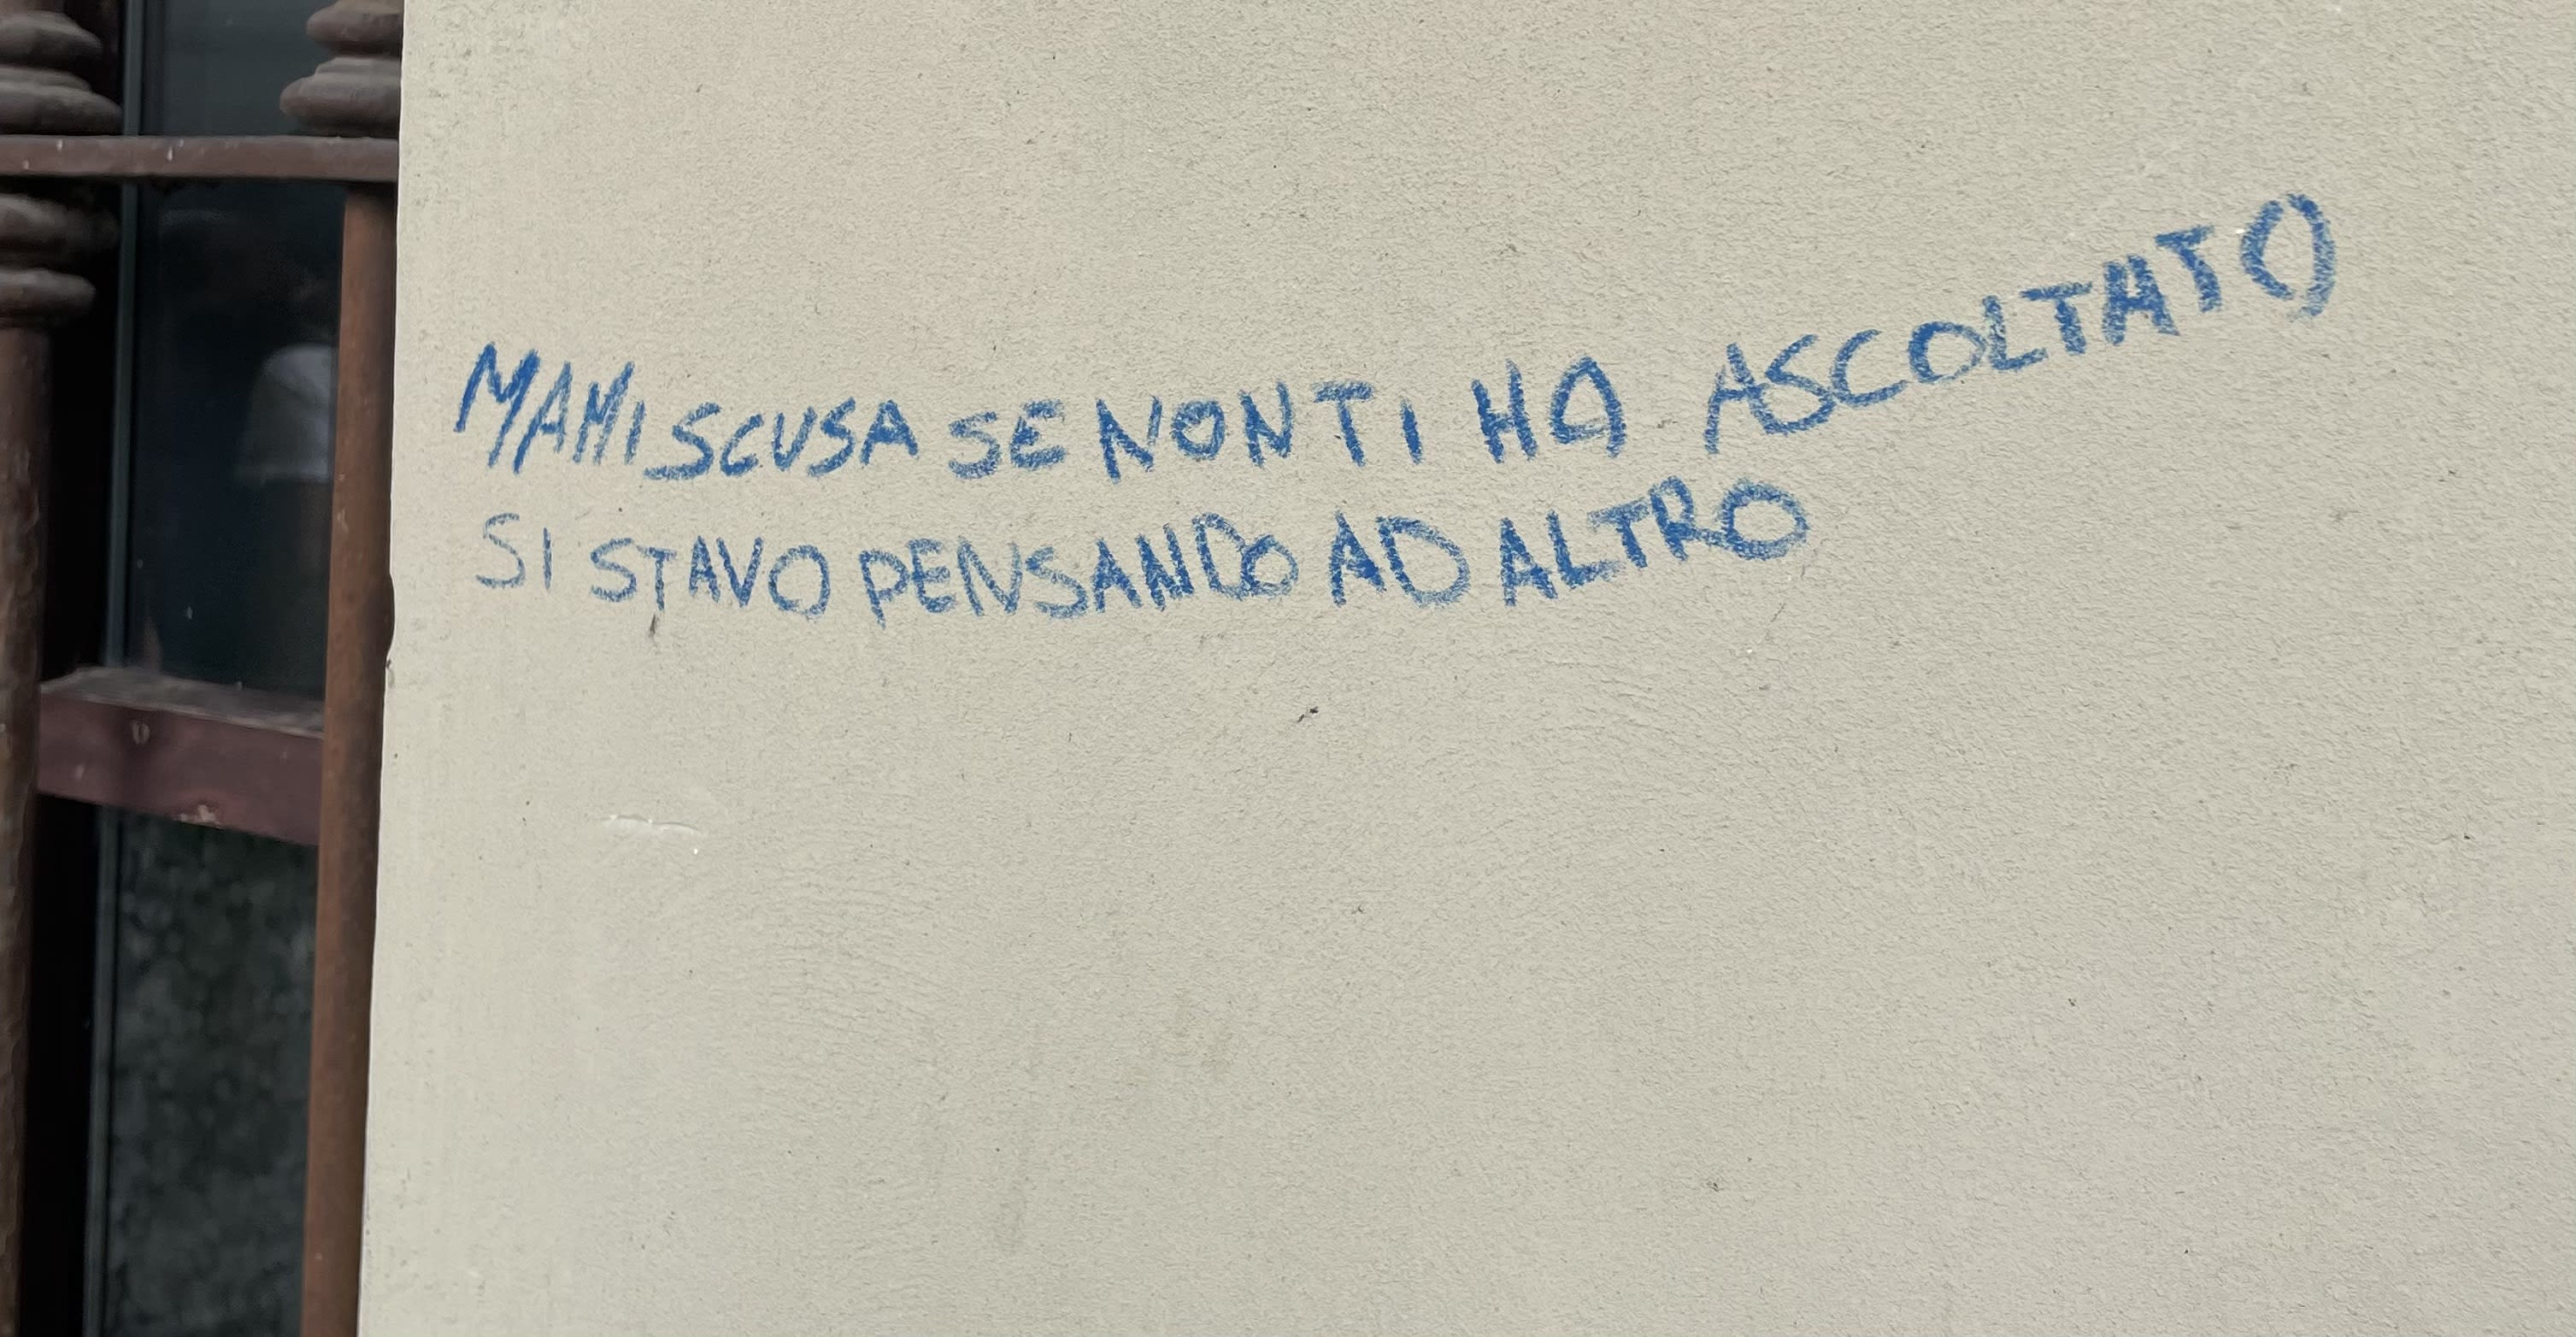 MAMI SCUSA SE NON TI HA ASCOLTATO
SI STAVO PENSANDO AD ALTRO